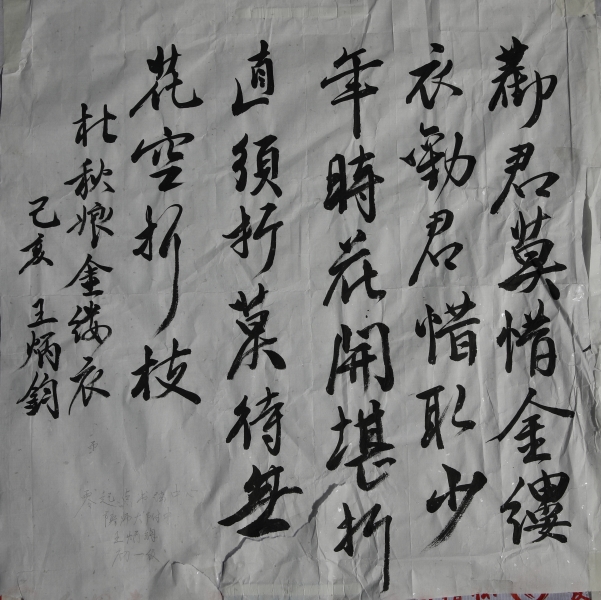 勸君莫惜金縷
衣勸君惜取少
年時花開堪折
直須折莫待無
花空折枝
杜秋娘金缕衣
己亥 王炳鈞